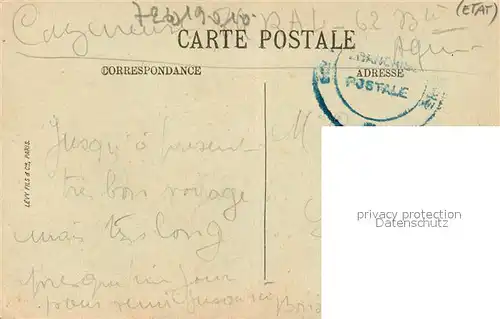 720 19 510
(ETAT)
CARTE POSTALE
CORRESPONDANCE
ADRESSE
FRANCHISE
POSTALE
LÉVY FILS & Cie, PARIS
Jusqu'à présent
très bon voyage
mais très long
presque un jour
pour venir jusqu'ici
privacy protection
Datenschutz